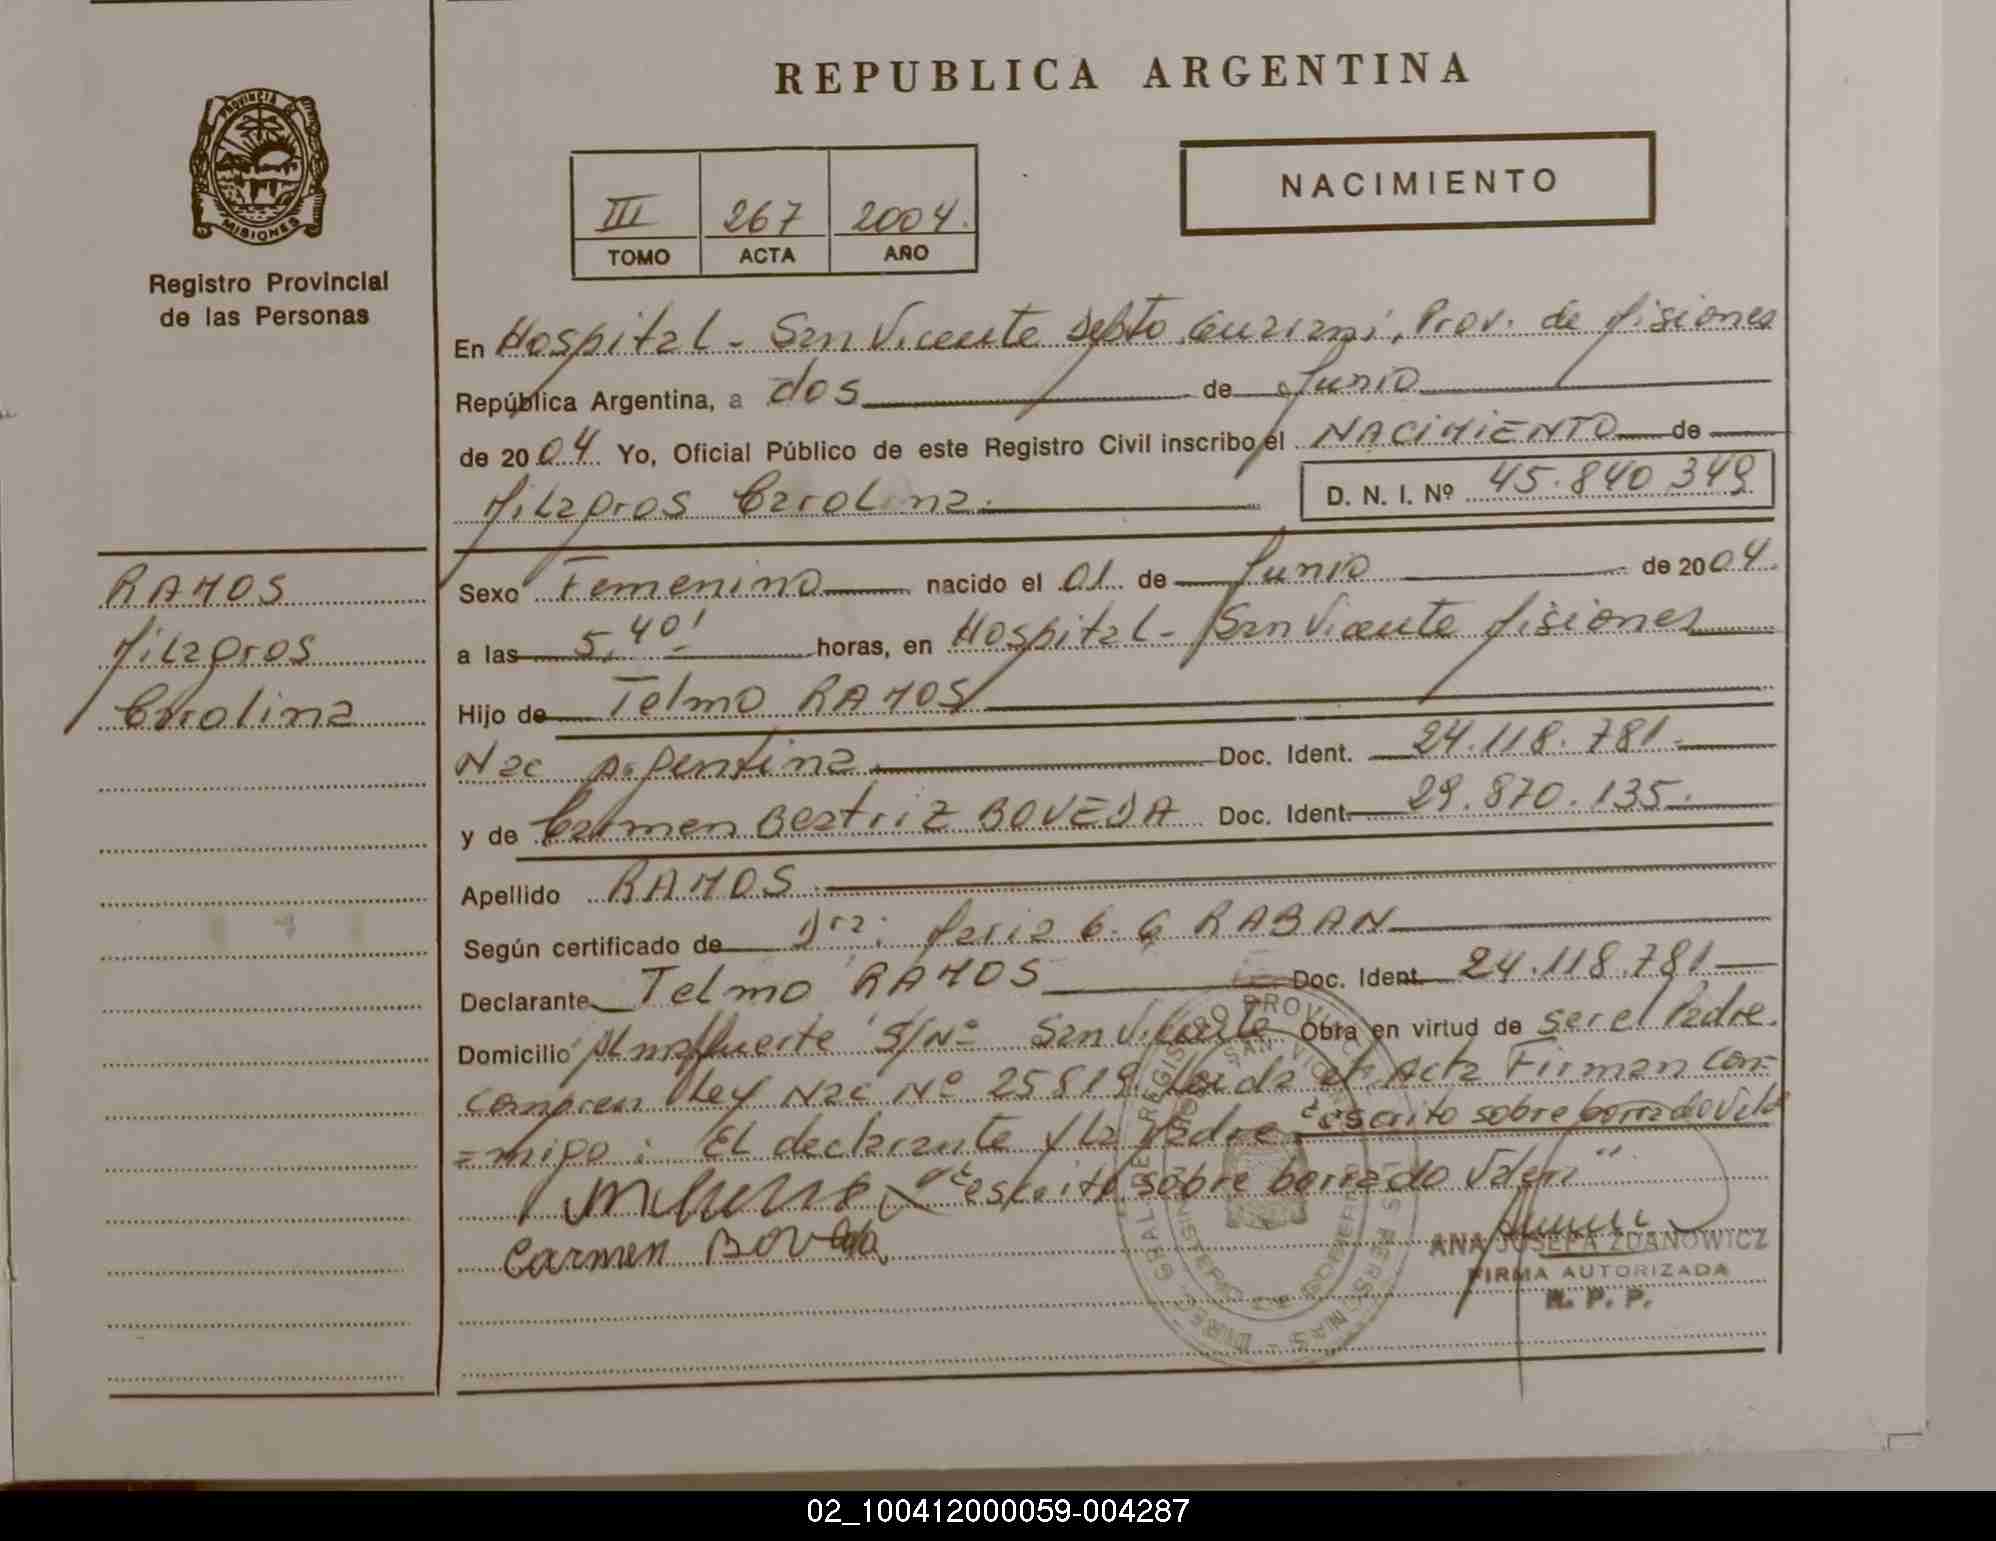 REPUBLICA ARGENTINA
PROVINCIA DE
MISIONES
Registro Provincial
de las Personas
III 267 2004.
TOMO ACTA AÑO
NACIMIENTO
En Hospital - San Vicente Depto Guarani, Prov. de Misiones
República Argentina, a dos de Junio
de 2004 Yo, Oficial Público de este Registro Civil inscribo el NACIMIENTO de
Milagros Carolina. D. N. I. Nº 45.840 349
RAMOS
Milagros
Carolina
Sexo Femenino nacido el 01 de Junio de 2004.
a las 5,40' horas, en Hospital - San Vicente Misiones
Hijo de Telmo RAMOS
Nac Argentina Doc. Ident. 24.118.781.
y de Carmen Beatriz BOVEDA Doc. Ident. 29.870.135.
Apellido RAMOS.
Según certificado de Dra: Maria C. G RABAN
Declarante Telmo RAMOS Doc. Ident. 24.118.781
Domicilio Almafuerte S/Nº San Vicente Obra en virtud de ser el Padre.
Compren Ley Nac Nº 25819. Leida el Acta Firman con=
=migo: El declarante y la Madre escrito sobre borrado Vale
escrito sobre borrado Vale"
Carmen BOVEDA
ANA JOSEFA ZDANOWICZ
FIRMA AUTORIZADA
R. P. P.
02_100412000059-004287